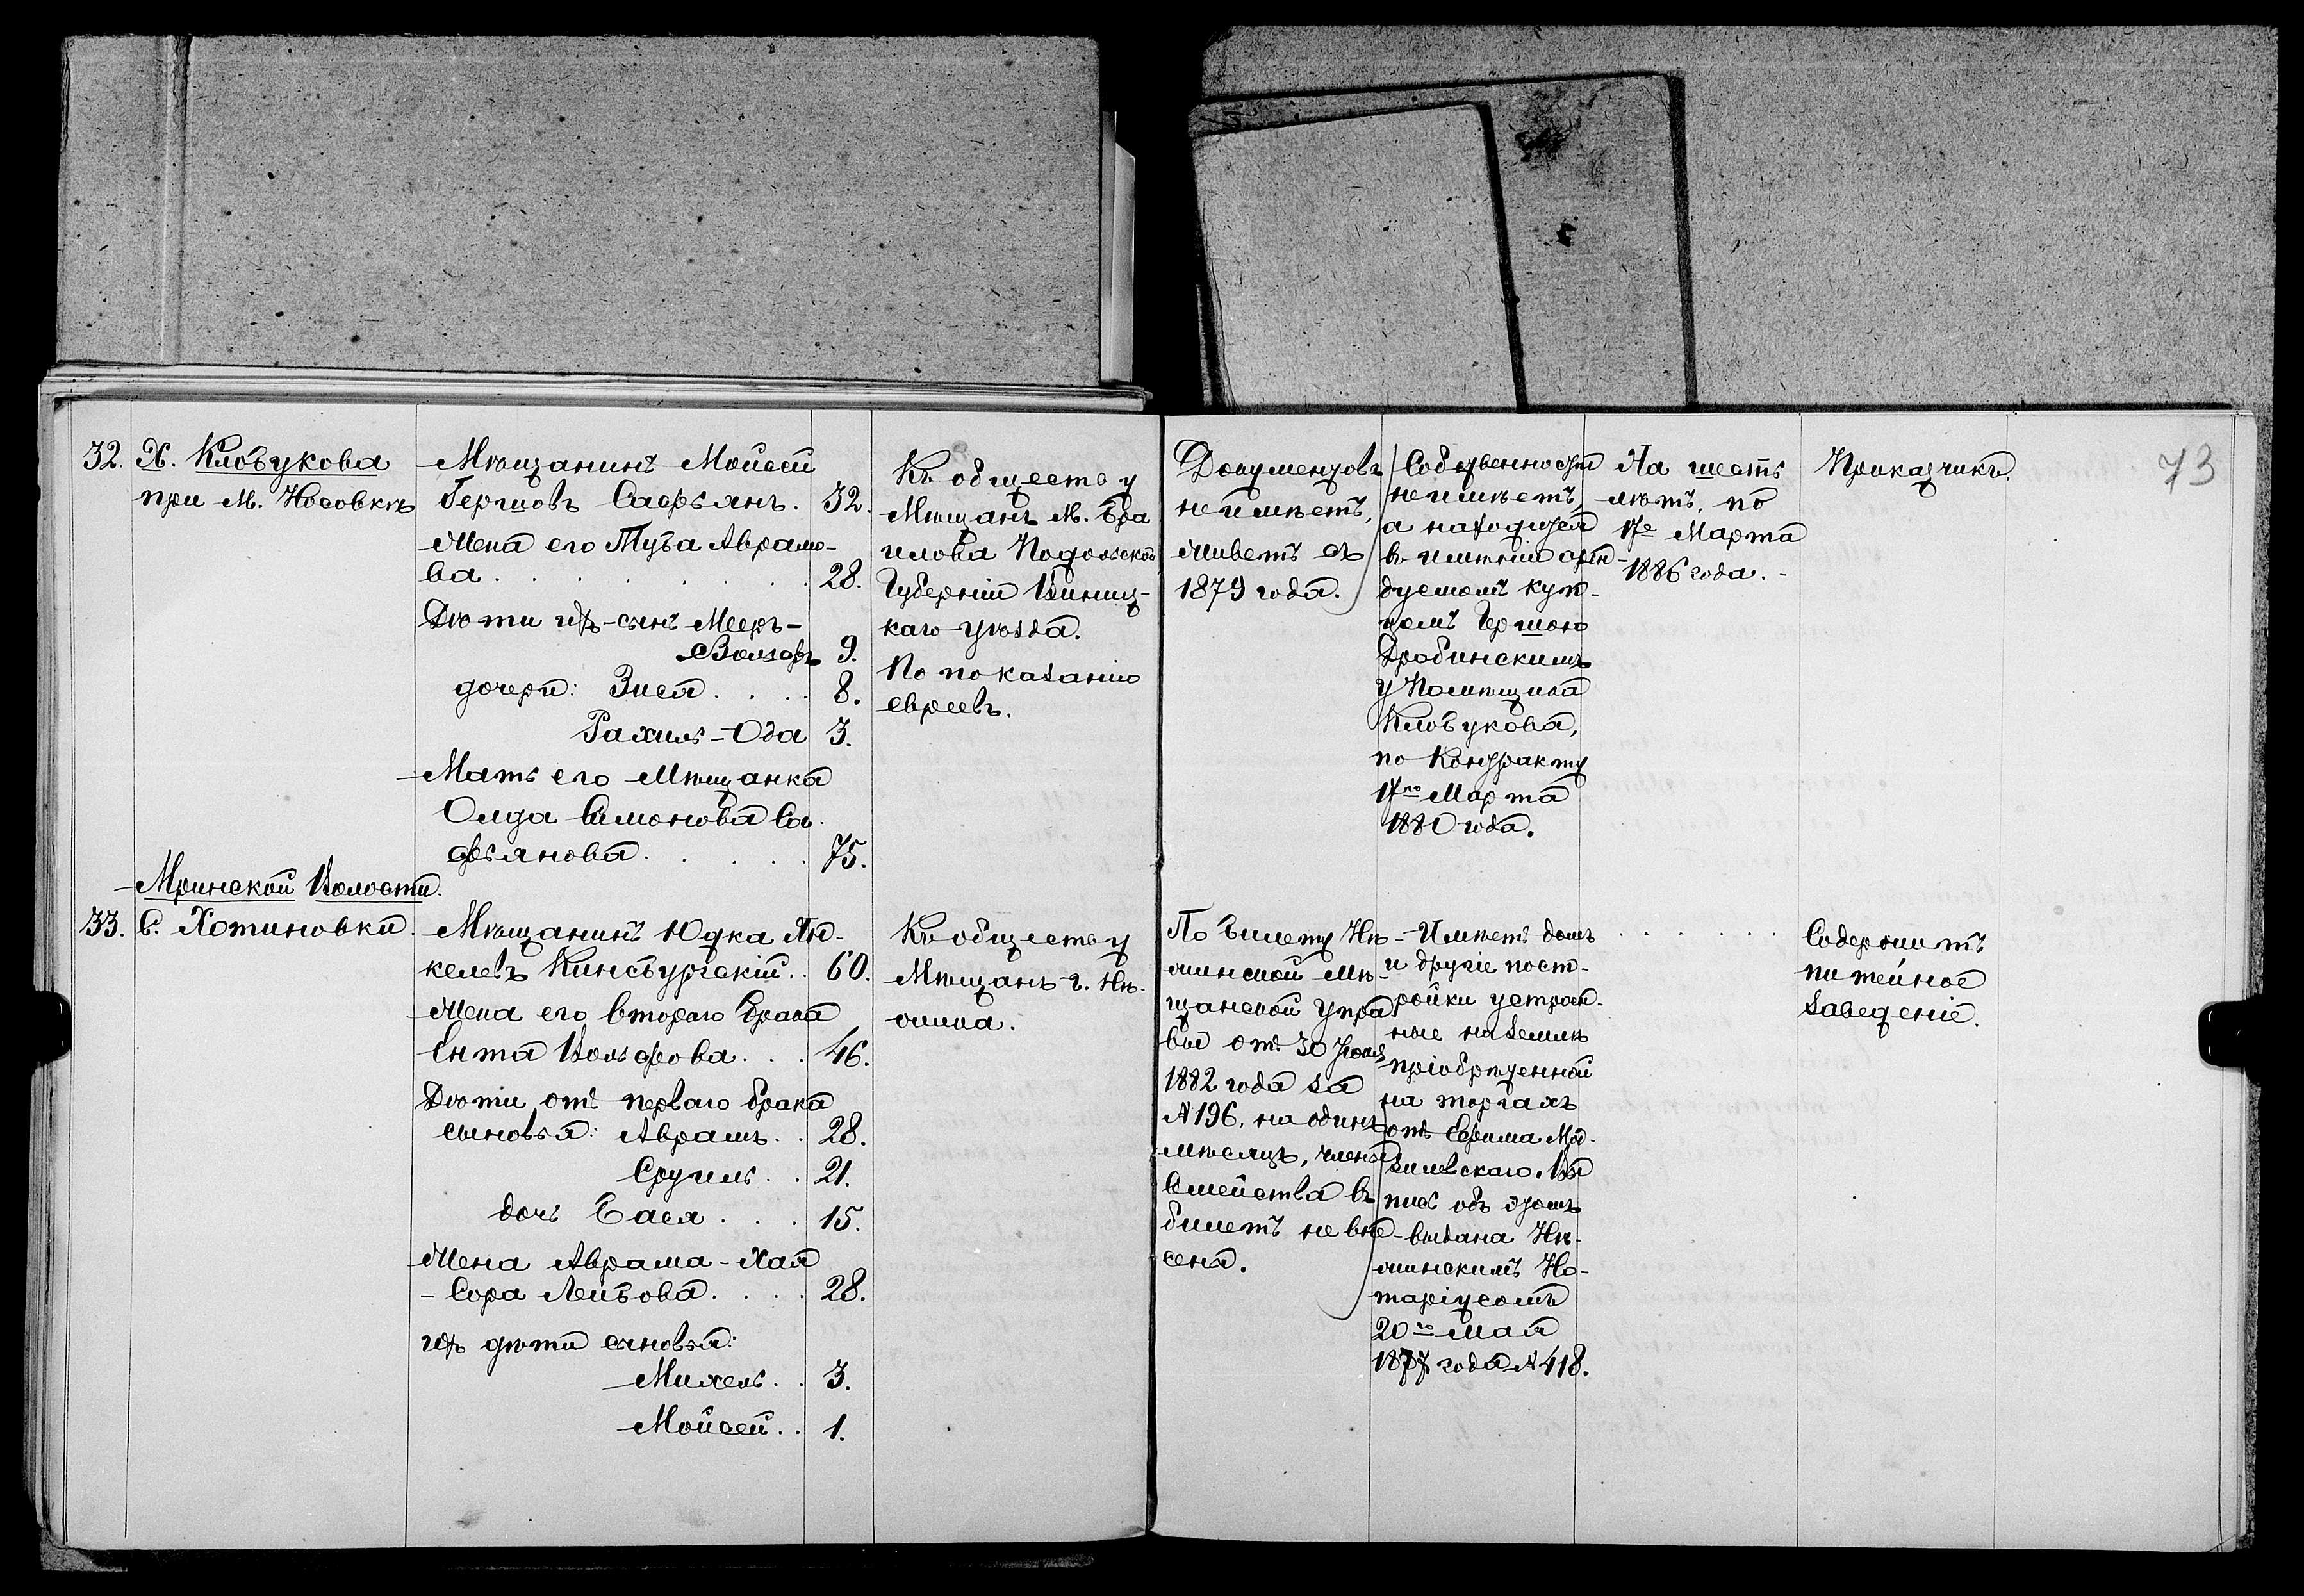 73
32. Х. Клобукова
при м. Носовкѣ
Мѣщанинъ Мойсей
Гершовъ Сафьянъ. 32.
Жена его Туба Абрамо-
ва . . . . . . . . 28.
Дѣти ихъ – сынъ Мееръ-
Вольфъ 9.
дочери: Зися . . . . 8.
Рахиль – Ода 3.
Мать его Мѣщанка
Симонова Са-
фьянова . . . . . 75.
Къ обществу
Мѣщанъ м. Бра
илова Подольской
Губерніи Винниц-
каго уѣзда.
По показанію
евреевъ.
Документовъ
не имѣетъ,
живетъ съ
1879 года.
Собственности
не имѣетъ,
а находится
въ имѣніи арен-
дуемомъ куп-
цомъ Гершою
Драбинскимъ
у Помѣщика
Клобукова,
по Контракту
17го Марта
1880 года.
На шесть
лѣтъ, по
17е Марта
1886 года. -
Приказчикъ.
Мринской Волости.
33. С. Хотиновка.
Мѣщанинъ Юдка Ян-
келевъ Кинсбургскій . . 60.
Жена его втораго брака
Ента Вольфова . . . 46.
Дѣти отъ перваго брака
сыновья: Абрамъ . . 28.
Сруль . . 21.
дочь Бася . . . 15.
Жена Абрама – Хая
– Сора Лейбова . . . . 28.
ихъ дѣти сыновья:
Михель . . 3.
Мойсей . . 1.
Къ обществу
Мѣщанъ г. Нѣ-
жина.
По билету Нѣ-
жинской Мѣ-
щанской Упра
вы отъ 30 Іюля
1882 года за
№ 196, на одинъ
мѣсяцъ, члены
Семейства въ
билетъ не вне-
сены.
Имѣетъ домъ
и другіе пост-
ройки устроен-
ные на землѣ
пріобрѣтенной
на торгахъ
отъ Ефима
Ку
пчая объ этомъ
выдана Нѣ-
жинскимъ Но-
таріусомъ
20го Мая
1877 года № 418.
. . . . . . .
Содержитъ
питейное
заведеніе.